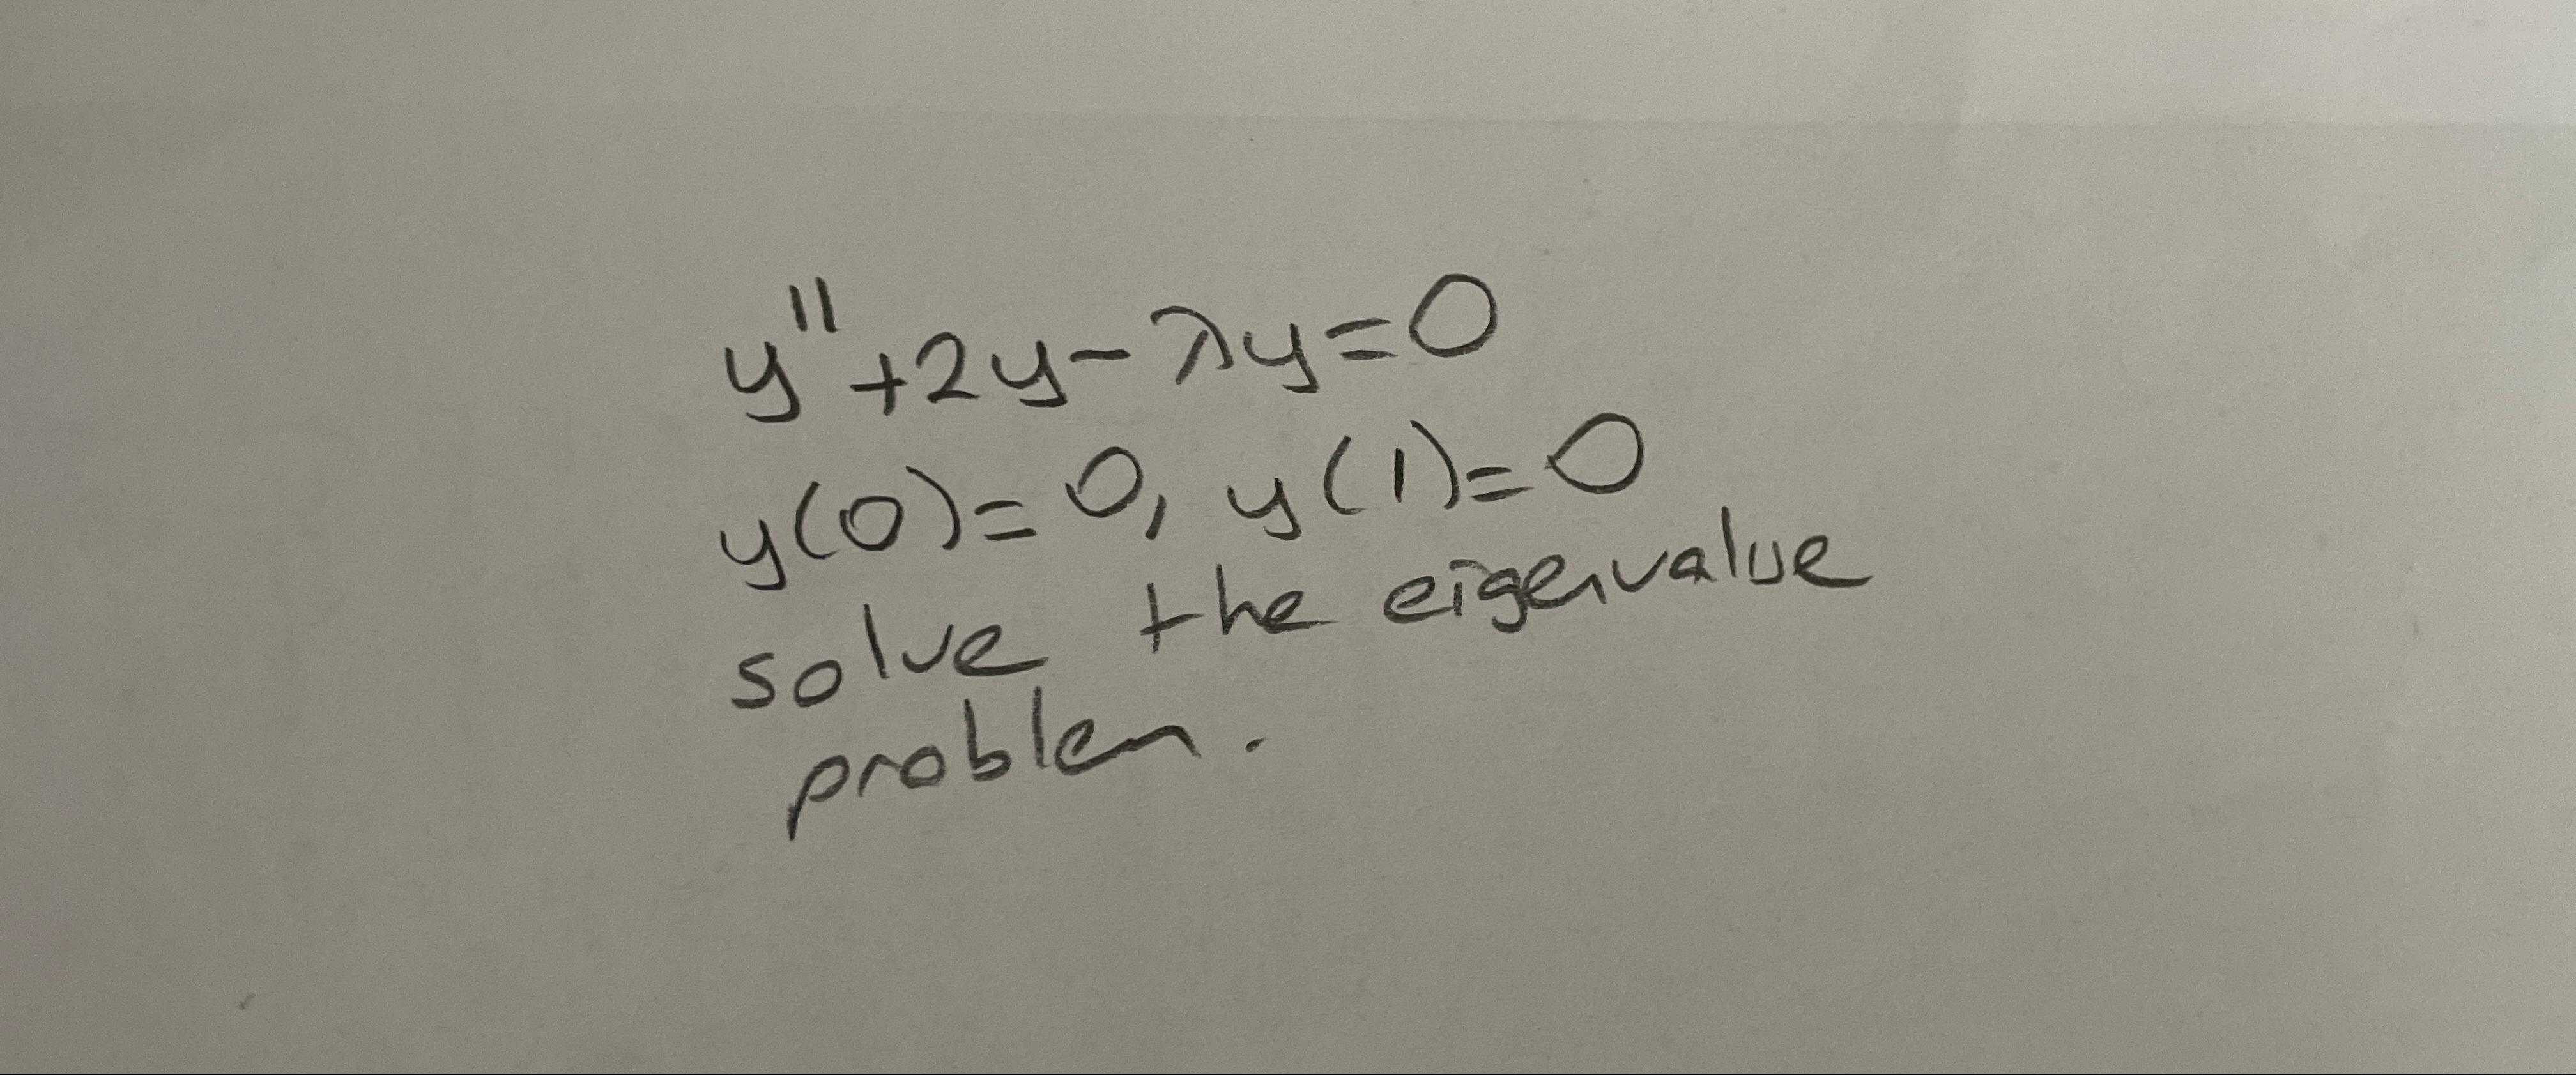 y''+2y-λy=0
y(0)=0, y(1)=0
solve the eigenvalue
problem.